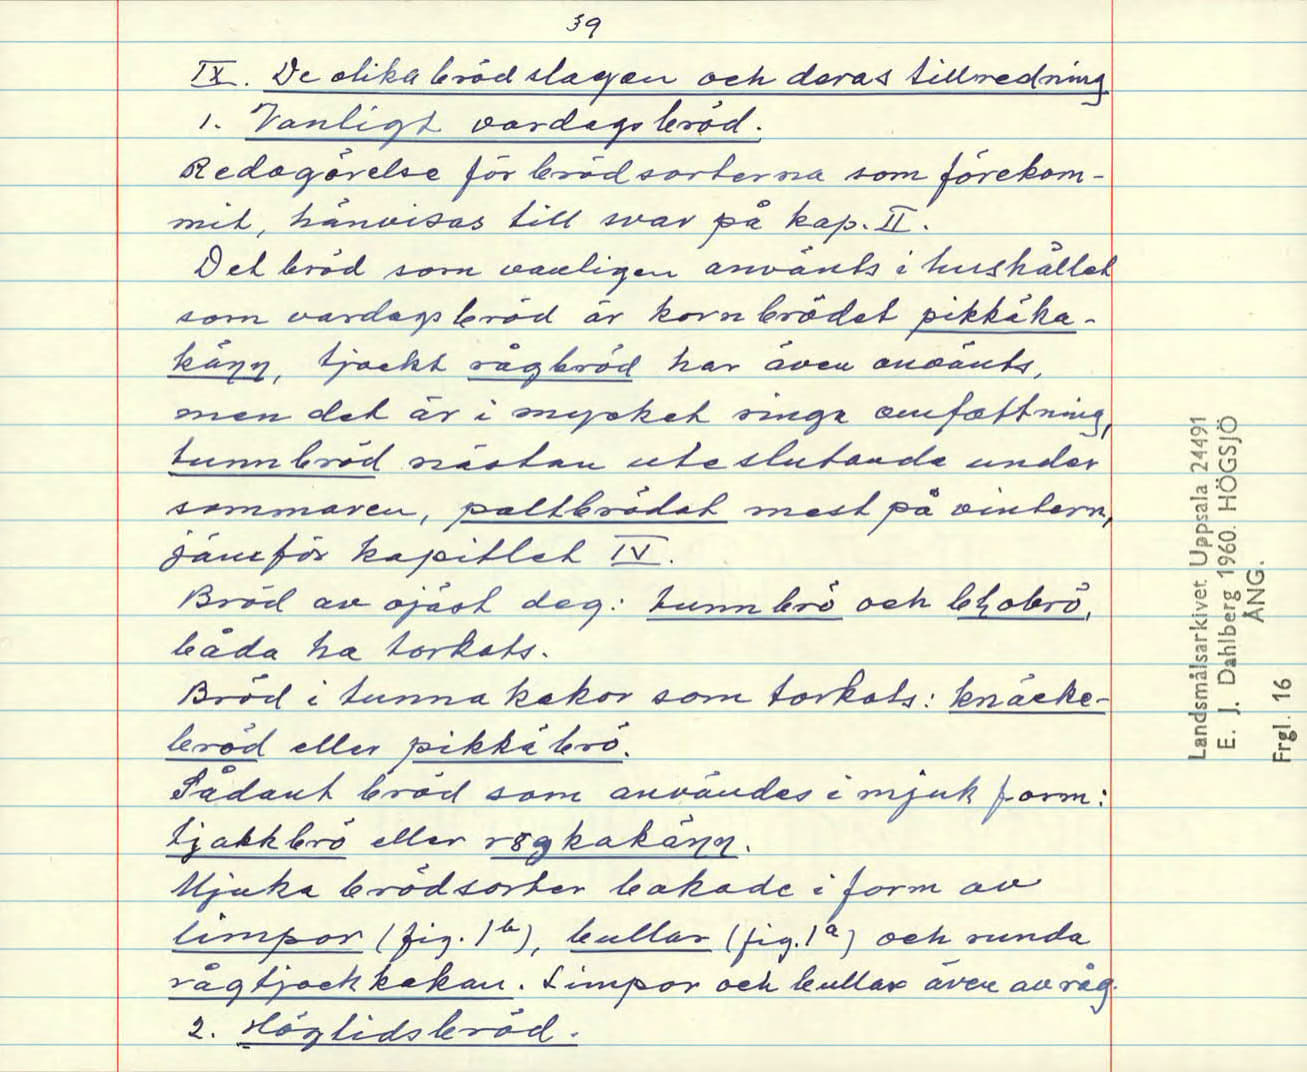 39
IX. De olika brödslagen och deras tillredning
1. Vanligt vardagsbröd.
Redogörelse för brödsorterna som förekom-
mit, hänvisas till svar på kap. II.
Det bröd som vanligen använts i hushållet
som vardagsbröd är kornbrödet pikkäka-
käŋŋ, tjockt rågbröd har även använts,
men det är i mycket ringa omfattning,
tunnbröd nästan uteslutande under
sommaren, paltbrödet mest på vintern,
jämför kapitlet IV.
Bröd av ojäst deg: tunnbrö och
båda ha torkats.
Bröd i tunna kakor som torkats: knäcke-
bröd eller pikkäbrö.
Sådant bröd som användes i mjuk form:
tjakkbrö eller
Mjuka brödsorter bakade i form av
limpor (fig. 1b), bullar (fig. 1a) och runda
rågtjockkakan. Limpor och bullar även av råg.
2. Högtidsbröd.
Landsmålsarkivet Uppsala 24491
E. J. Dahlberg 1960. HÖGSJÖ
ÅNG.
Frgl. 16